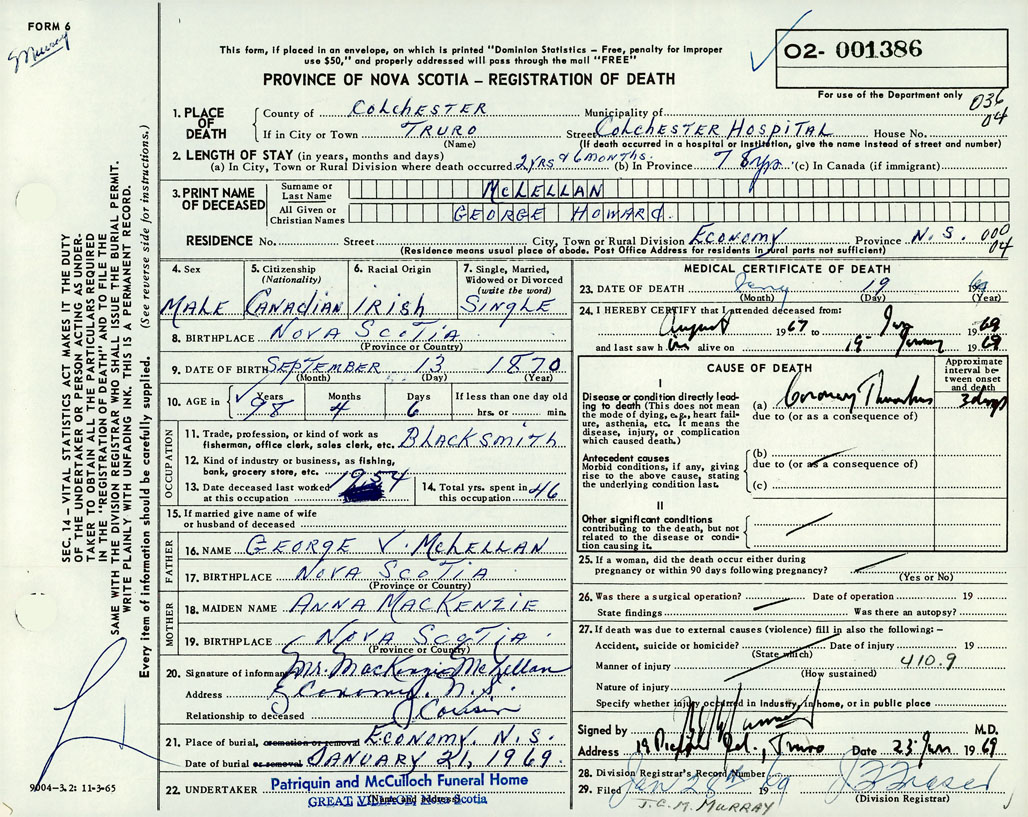 FORM 6
Murray
This form, if placed in an envelope, on which is printed "Dominion Statistics – Free, penalty for improper
use $50," and properly addressed will pass through the mail "FREE"
PROVINCE OF NOVA SCOTIA – REGISTRATION OF DEATH
O2- 001386
For use of the Department only
036
04
1. PLACE OF DEATH
County of COLCHESTER Municipality of
If in City or Town TRURO Street COLCHESTER HOSPITAL House No.
(Name) (If death occurred in a hospital or institution, give the name instead of street and number)
2. LENGTH OF STAY (in years, months and days)
(a) In City, Town or Rural Division where death occurred 2 YRS & 6 MONTHS. (b) In Province 98 yrs (c) In Canada (if immigrant)
3. PRINT NAME OF DECEASED
Surname or Last Name McLELLAN
All Given or Christian Names GEORGE HOWARD.
RESIDENCE No. Street City, Town or Rural Division ECONOMY Province N.S. 000
04
(Residence means usual place of abode. Post Office Address for residents in rural parts not sufficient)
4. Sex MALE
5. Citizenship (Nationality) CANADIAN
6. Racial Origin IRISH
7. Single, Married, Widowed or Divorced (write the word) SINGLE
8. BIRTHPLACE NOVA SCOTIA
(Province or Country)
9. DATE OF BIRTH SEPTEMBER 13 1870
(Month) (Day) (Year)
10. AGE in Years 98 Months 4 Days 6 If less than one day old hrs. or min.
OCCUPATION
11. Trade, profession, or kind of work as fisherman, office clerk, sales clerk, etc. BLACKSMITH
12. Kind of industry or business, as fishing, bank, grocery store, etc.
13. Date deceased last worked at this occupation 1954
14. Total yrs. spent in this occupation 46
15. If married give name of wife or husband of deceased
FATHER
16. NAME GEORGE V. McLELLAN
17. BIRTHPLACE NOVA SCOTIA
(Province or Country)
MOTHER
18. MAIDEN NAME ANNA MACKENZIE
19. BIRTHPLACE NOVA SCOTIA
(Province or Country)
20. Signature of informant Mr. MacKenzie McLellan
Address Economy, N.S.
Relationship to deceased Cousin
21. Place of burial, cremation or removal ECONOMY, N.S.
Date of burial or removal JANUARY 21, 1969.
22. UNDERTAKER Patriquin and McCulloch Funeral Home
(Name and Address)
GREAT VILLAGE, Nova Scotia
MEDICAL CERTIFICATE OF DEATH
23. DATE OF DEATH Jany 19 1969
(Month) (Day) (Year)
24. I HEREBY CERTIFY that I attended deceased from:
August 1967 to Jan 1969
and last saw him alive on 19 January 1969
CAUSE OF DEATH
Approximate interval between onset and death
I
Disease or condition directly leading to death (This does not mean the mode of dying, e.g., heart failure, asthenia, etc. It means the disease, injury, or complication which caused death.)
(a) Coronary Thrombus 3 days
due to (or as a consequence of)
Antecedent causes
Morbid conditions, if any, giving rise to the above cause, stating the underlying condition last.
(b)
due to (or as a consequence of)
(c)
II
Other significant conditions
contributing to the death, but not related to the disease or condition causing it.
25. If a woman, did the death occur either during pregnancy or within 90 days following pregnancy?
(Yes or No)
26. Was there a surgical operation? Date of operation 19
State findings Was there an autopsy?
27. If death was due to external causes (violence) fill in also the following: –
Accident, suicide or homicide? Date of injury 19
(State which)
410.9
Manner of injury
(How sustained)
Nature of injury
Specify whether injury occurred in industry, in home, or in public place
Signed by M.D.
Address Truro Date 23 Jan 1969
28. Division Registrar's Record Number
29. Filed Jan 28th 1969 J B Fraser
(Division Registrar)
J.C.M. MURRAY
SEC. 14 – VITAL STATISTICS ACT MAKES IT THE DUTY
OF THE UNDERTAKER OR PERSON ACTING AS UNDER-
TAKER TO OBTAIN ALL THE PARTICULARS REQUIRED
IN THE "REGISTRATION OF DEATH" AND TO FILE THE
SAME WITH THE DIVISION REGISTRAR WHO SHALL ISSUE THE BURIAL PERMIT.
WRITE PLAINLY WITH UNFADING INK. THIS IS A PERMANENT RECORD.
Every item of information should be carefully supplied. (See reverse side for instructions.)
9004-3.2: 11-3-65